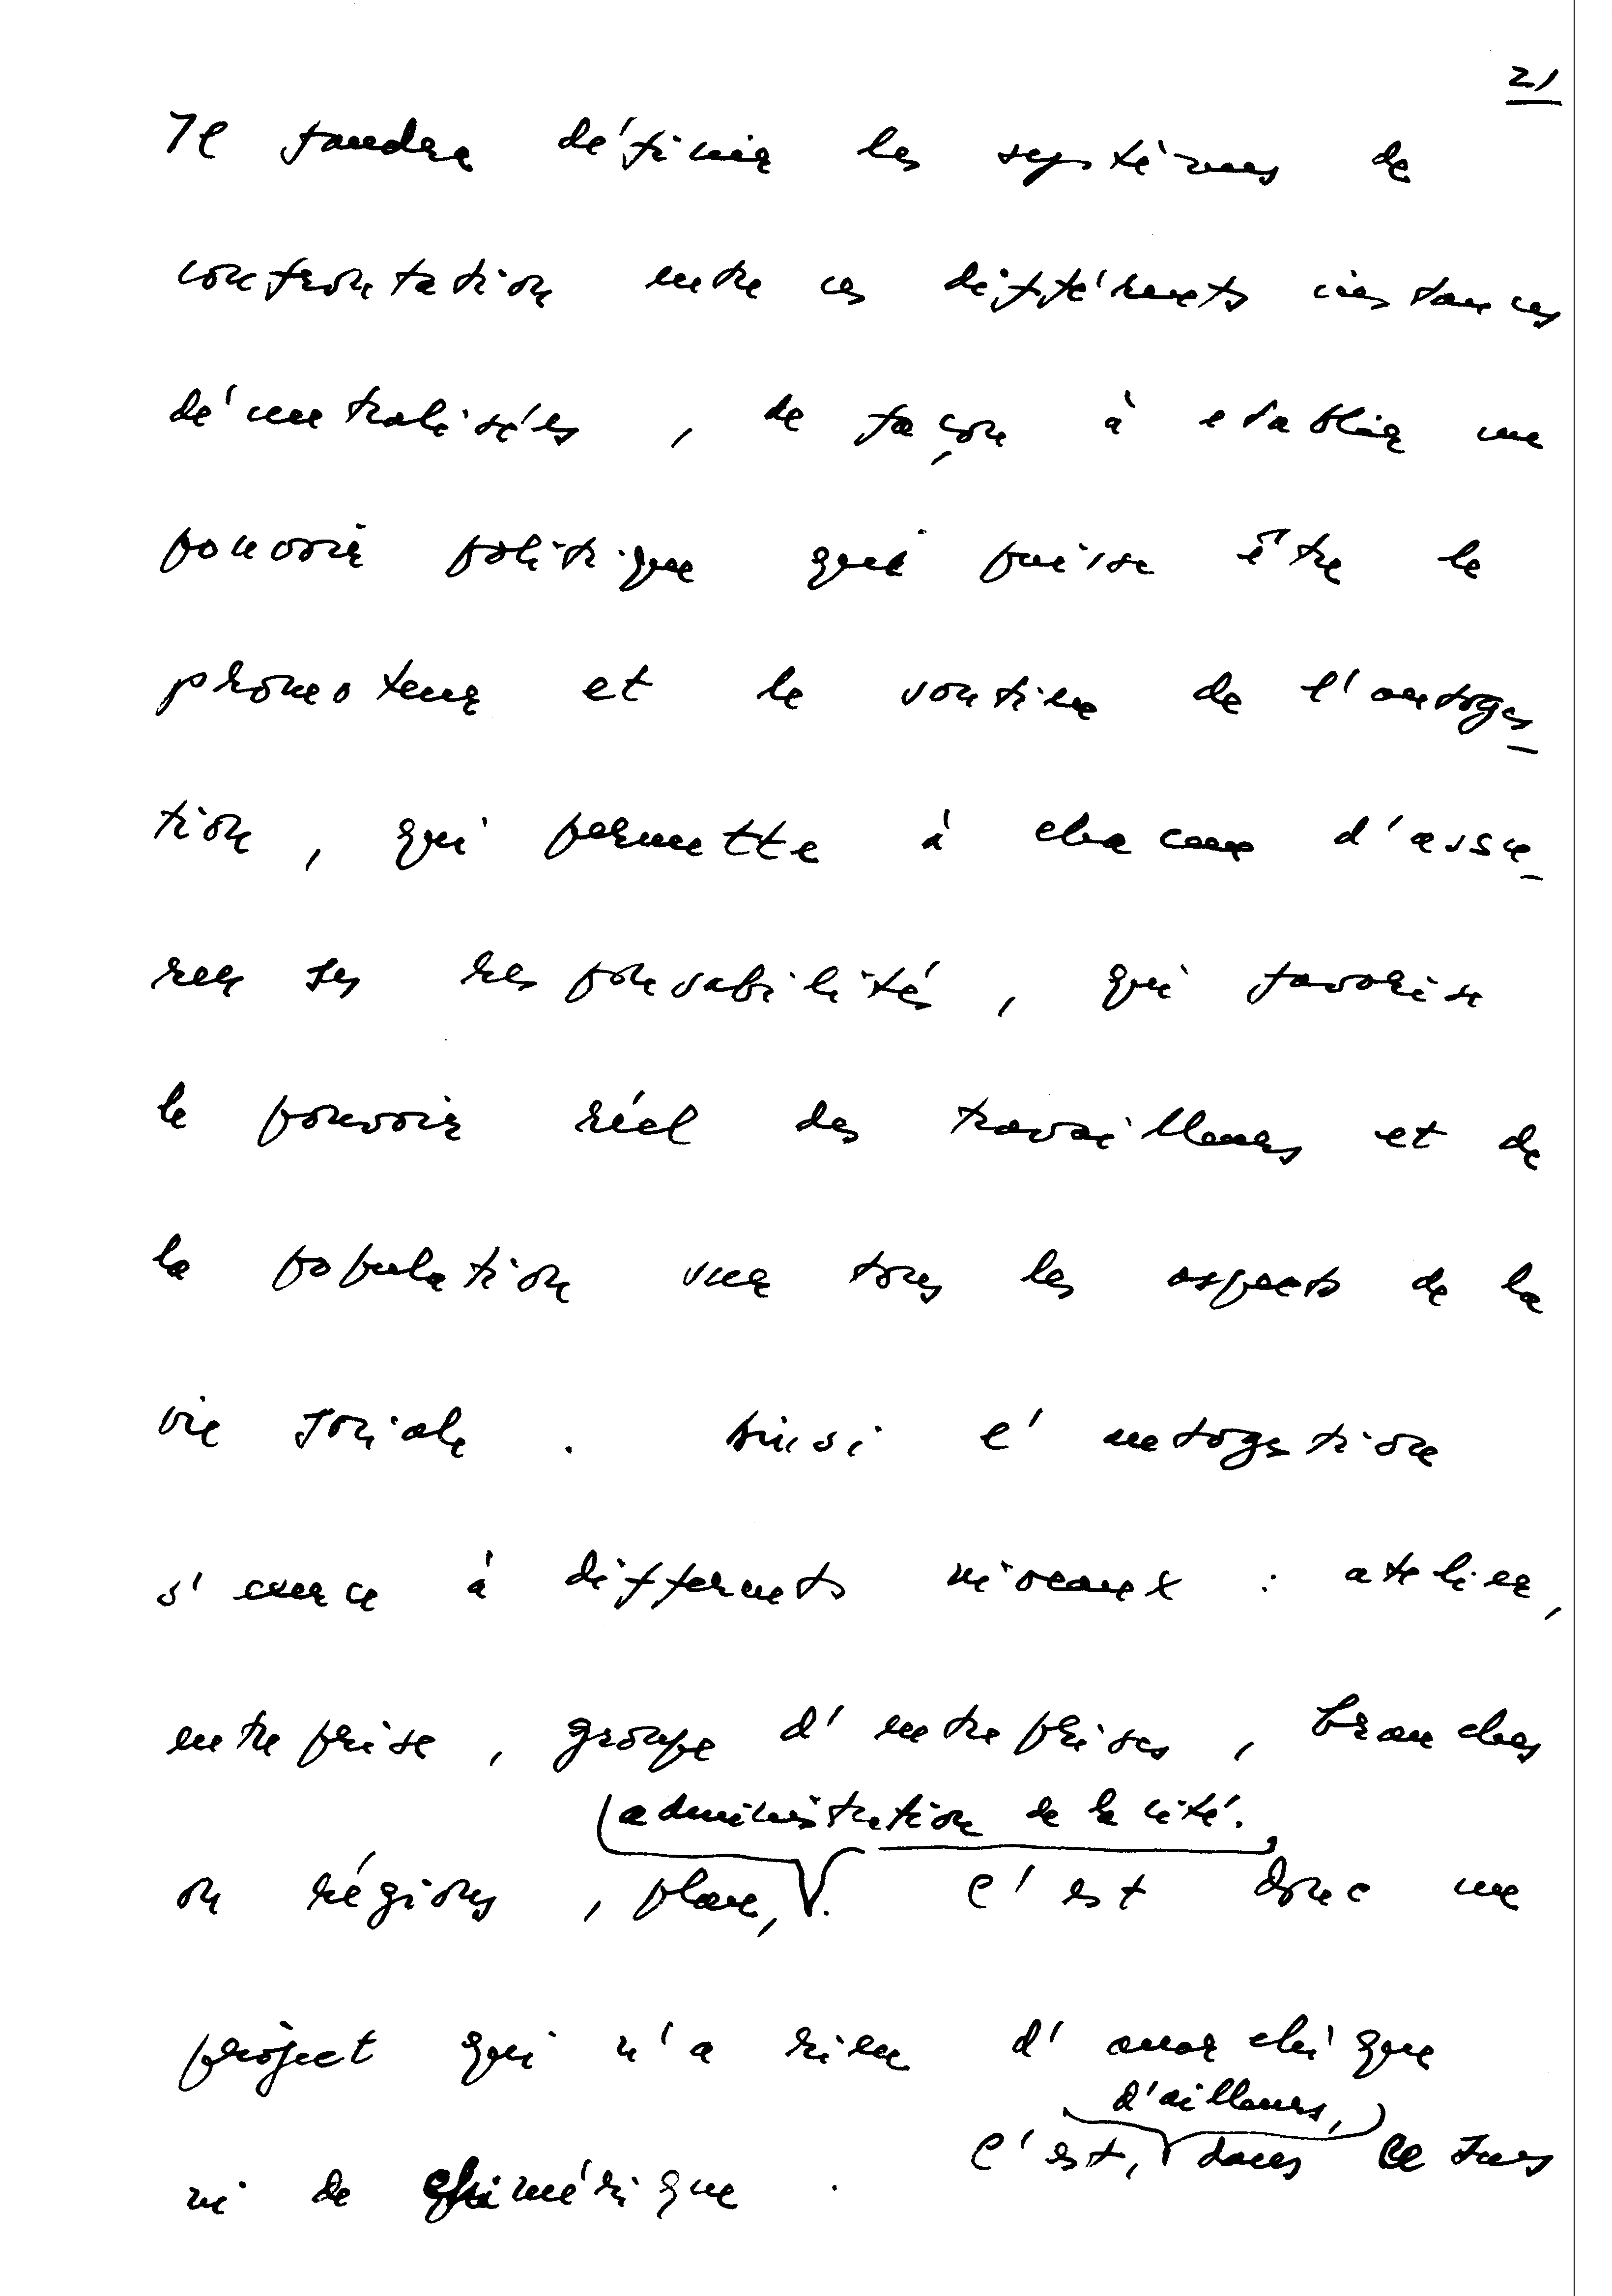 21
Il faudra définir les systèmes de
confrontation entre ces différents instances
décentralisées, de façon à etablir un
pouvoir politique qui puisse être le
promoteur et le soutien de l'autoges_
tion, qui permette à chacun d'assu_
rer ses responsabilités, qui favorise
le pouvoir réel des travailleurs et de
la population sur tous les aspects de la
vie sociale. Ainsi l'autogestion
s'exerce à differents niveaux : atelier,
entreprise, groupe d'entreprises, branches
administration de la cité.
ou régions, plan, C'est donc un
project qui n'a rien d'anarchique
d'ailleurs,
ni de chimérique. C'est, dans ce sens